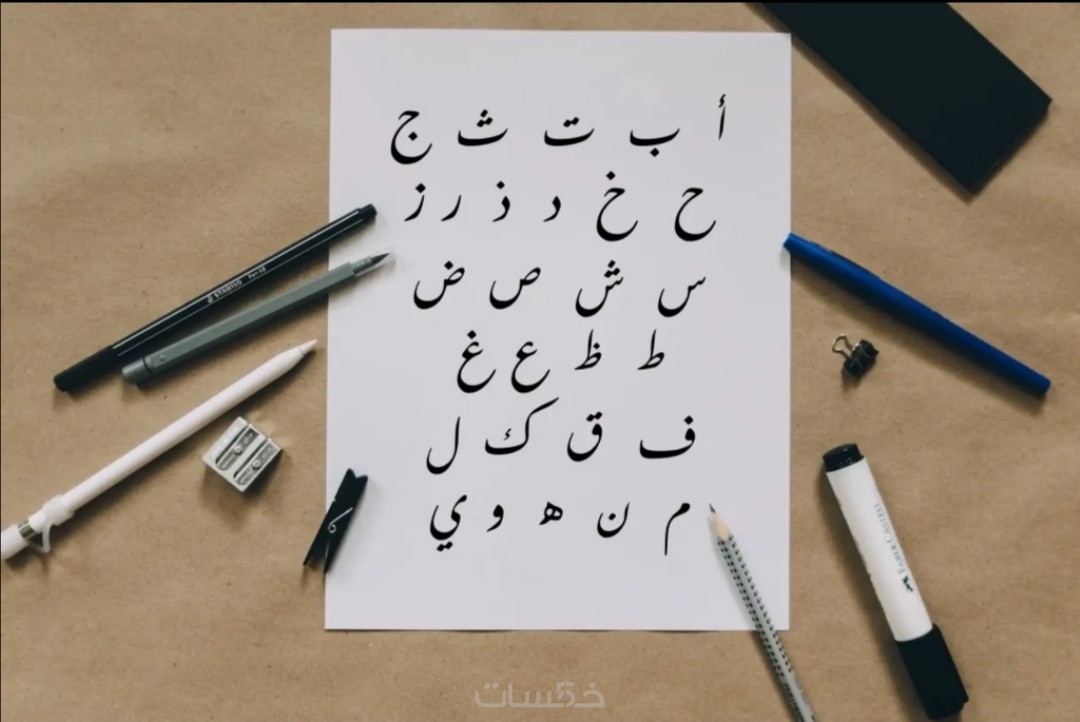 أ ب ت ث ج
ح خ د ذ ر ز
س ش ص ض
ط ظ ع غ
ف ق ك ل
م ن ه و ي
STAEDTLER
FABER-CASTELL
خمسات